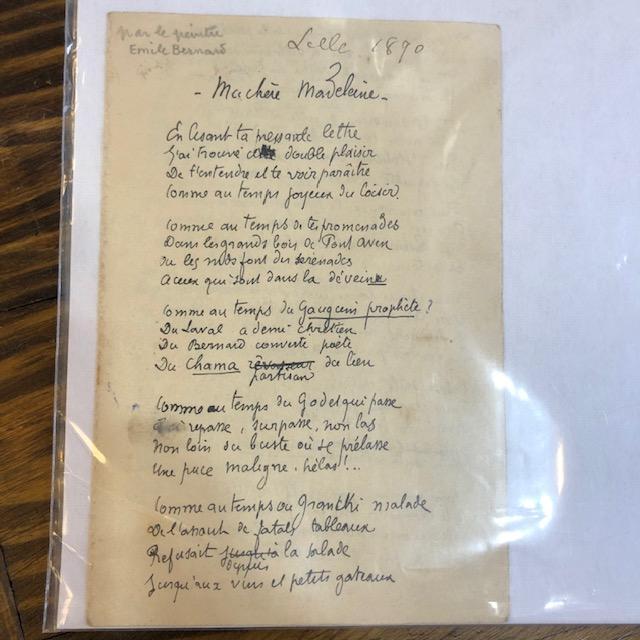 par le peintre
Emile Bernard
Lille 1890
- Ma chère Madeleine -
En lisant ta pressante lettre
J'ai trouvé double plaisir
De t'entendre et te voir paraître
Comme au temps joyeux du loisir.
Comme au temps de tes promenades
Dans les grands bois de Pont Aven
Où les nids font des sérénades
A ceux qui sont dans la déveine
Comme au temps du Gauguin prophète ?
Du Laval a demi chrétien
Du Bernard converti poète
Du Chama rêvasseur du lien
partisan
Comme au temps du Godes qui passe
repasse, surpasse, non las
Non loin du buste où se prélasse
Une puce maligne, hélas !...
Comme au temps où malade
De l'assaut de fatals tableaux
Refusait jusqu'à la salade
depuis
Jusqu'aux vins et petits gateaux